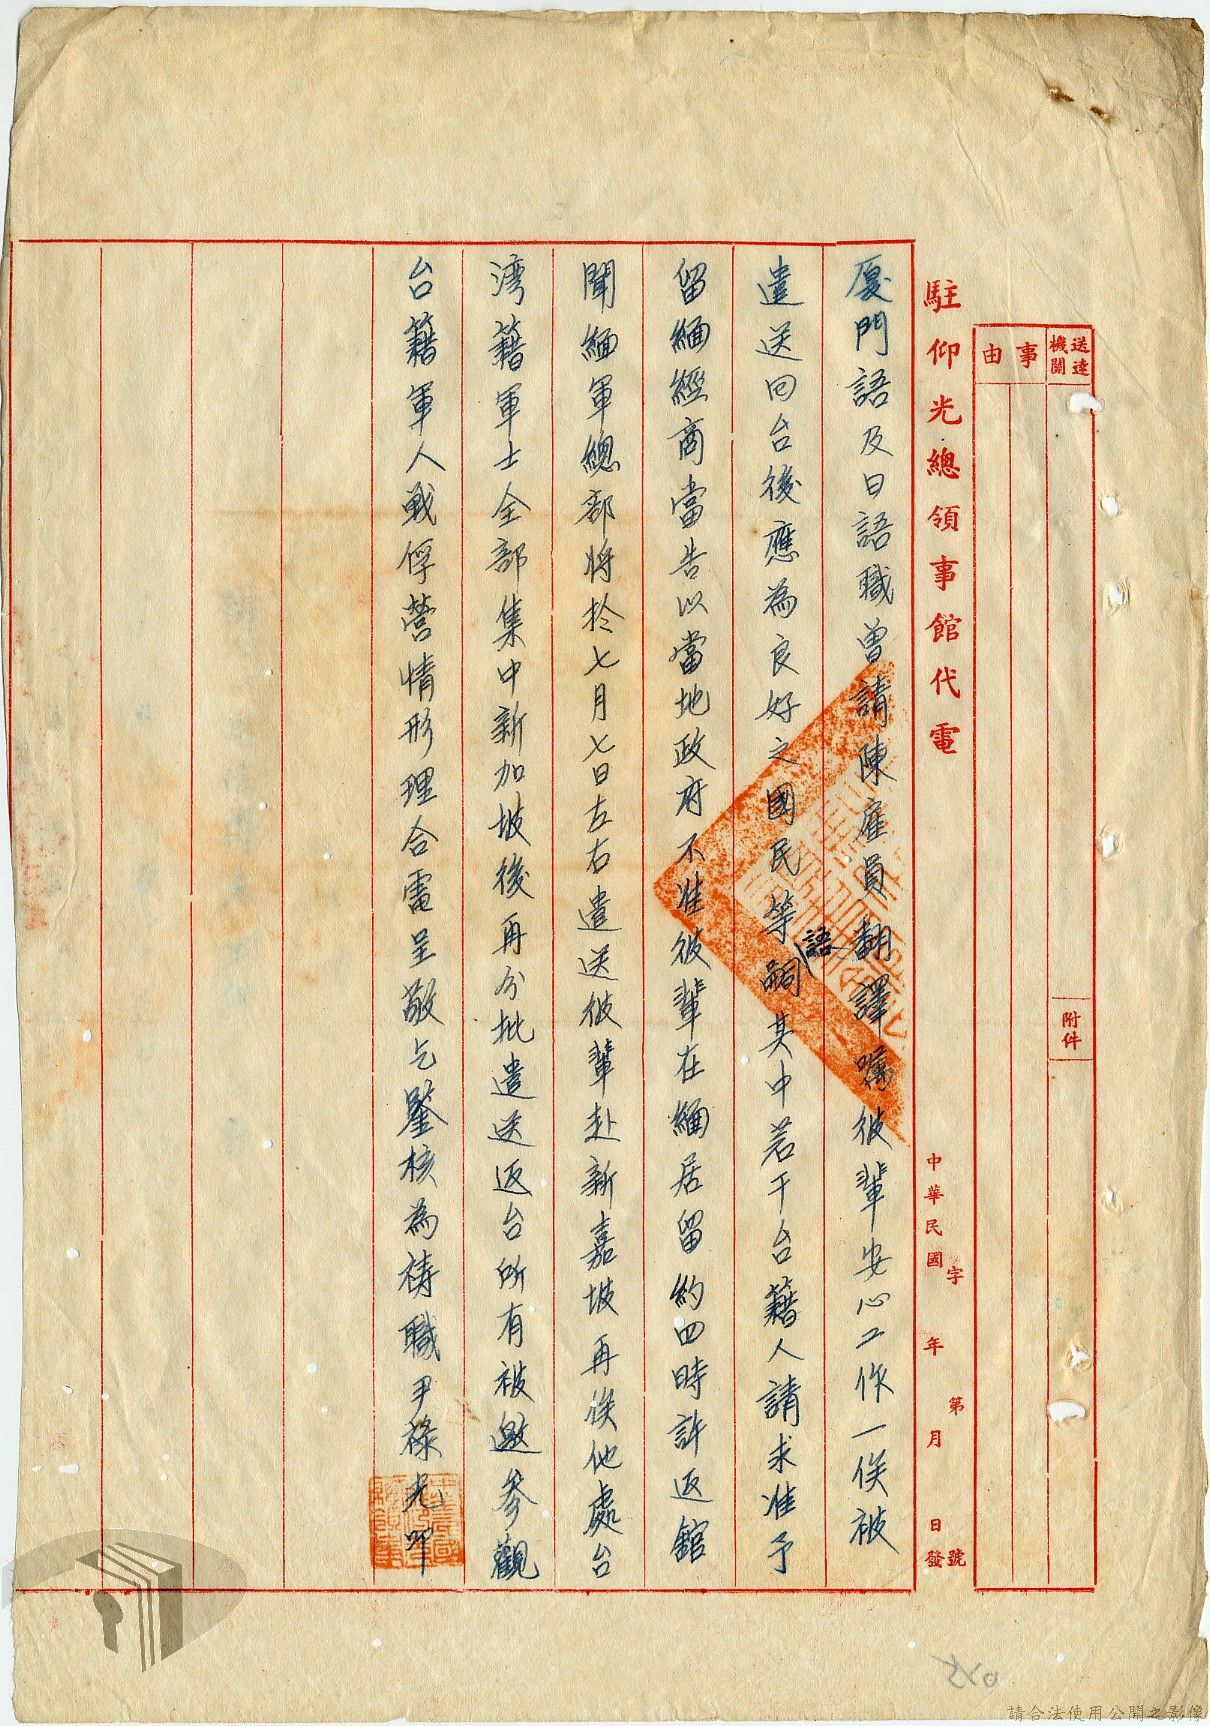 送達機關
事由
附件
駐仰光總領事館代電
中華民國 年 月 日發
字 第 號
厦門語及日語職曾請陳雇員翻譯嘱彼輩安心工作一俟被
遣送回台後應為良好之國民等語嗣其中若干台籍人請求准予
留緬經商當告以當地政府不准彼輩在緬居留約四時許返舘
聞緬軍總部将於七月七日左右遣送彼輩赴新嘉坡再俟他處台
湾籍軍士全部集中新加坡後再分批遣送返台所有被邀参觀
台籍軍人戰俘營情形理合電呈敬乞鑒核為祷職尹祿光叩
請合法使用公開之影像